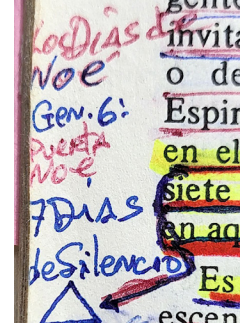 Los Días de
Noé
Gen. 6:
Puerta
Noé
7 Días
de Silencio
invita
o de
Espir
en el
siete
en aq
Es
escen